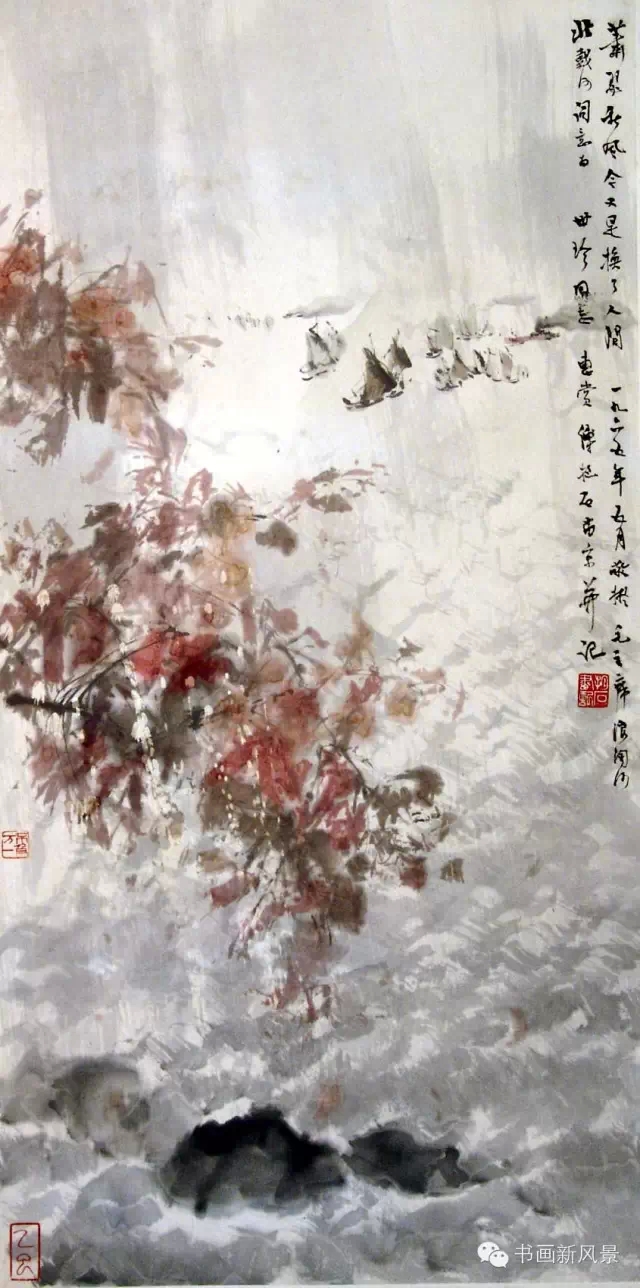 蕭瑟秋風今又是換了人間 一九六五年五月敬擬 毛主席浪淘沙
北戴河詞意為 世珍同志 惠賞 傅抱石南京并記
不及万一
乙巳
书画新风景